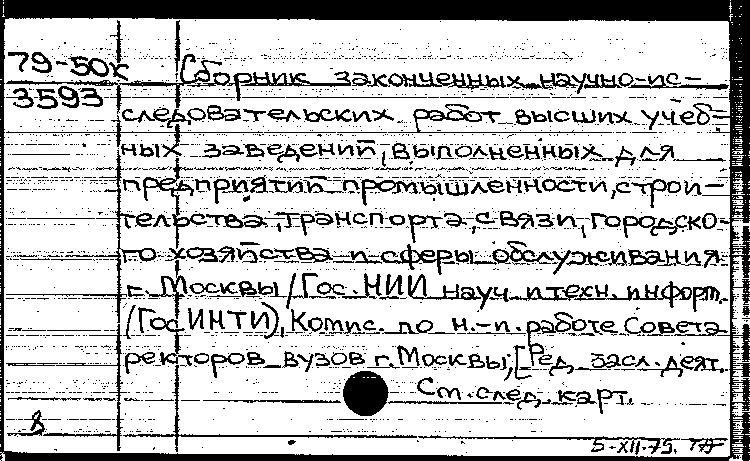 79-50к Сборник законченных научно-ис-
3593
следовательских работ высших учеб-
ных заведений, выполненных для
предприятий промышленности, строи-
тельства, транспорта, связи, городско-
го хозяйства и сферы обслуживания
г. Москвы / Гос. НИИ науч. и техн. информ.
(ГосИНТИ), Комис. по н.-и. работе Совета
ректоров вузов г. Москвы; [Ред. засл. деят.
См. след. карт.
8
5-XII-79.